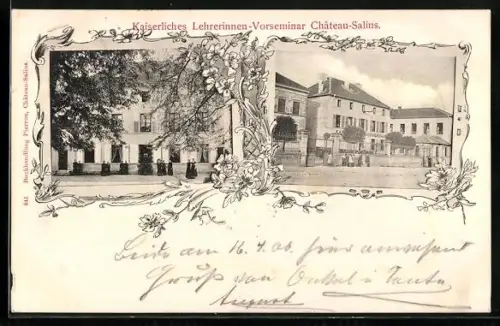 Kaiserliches Lehrerinnen-Vorseminar Château-Salins.
841 Buchhandlung Pierron, Château-Salins
Beide am 16. 4. 06. hier anwesend
Gruß von Onkel u. Tante
August